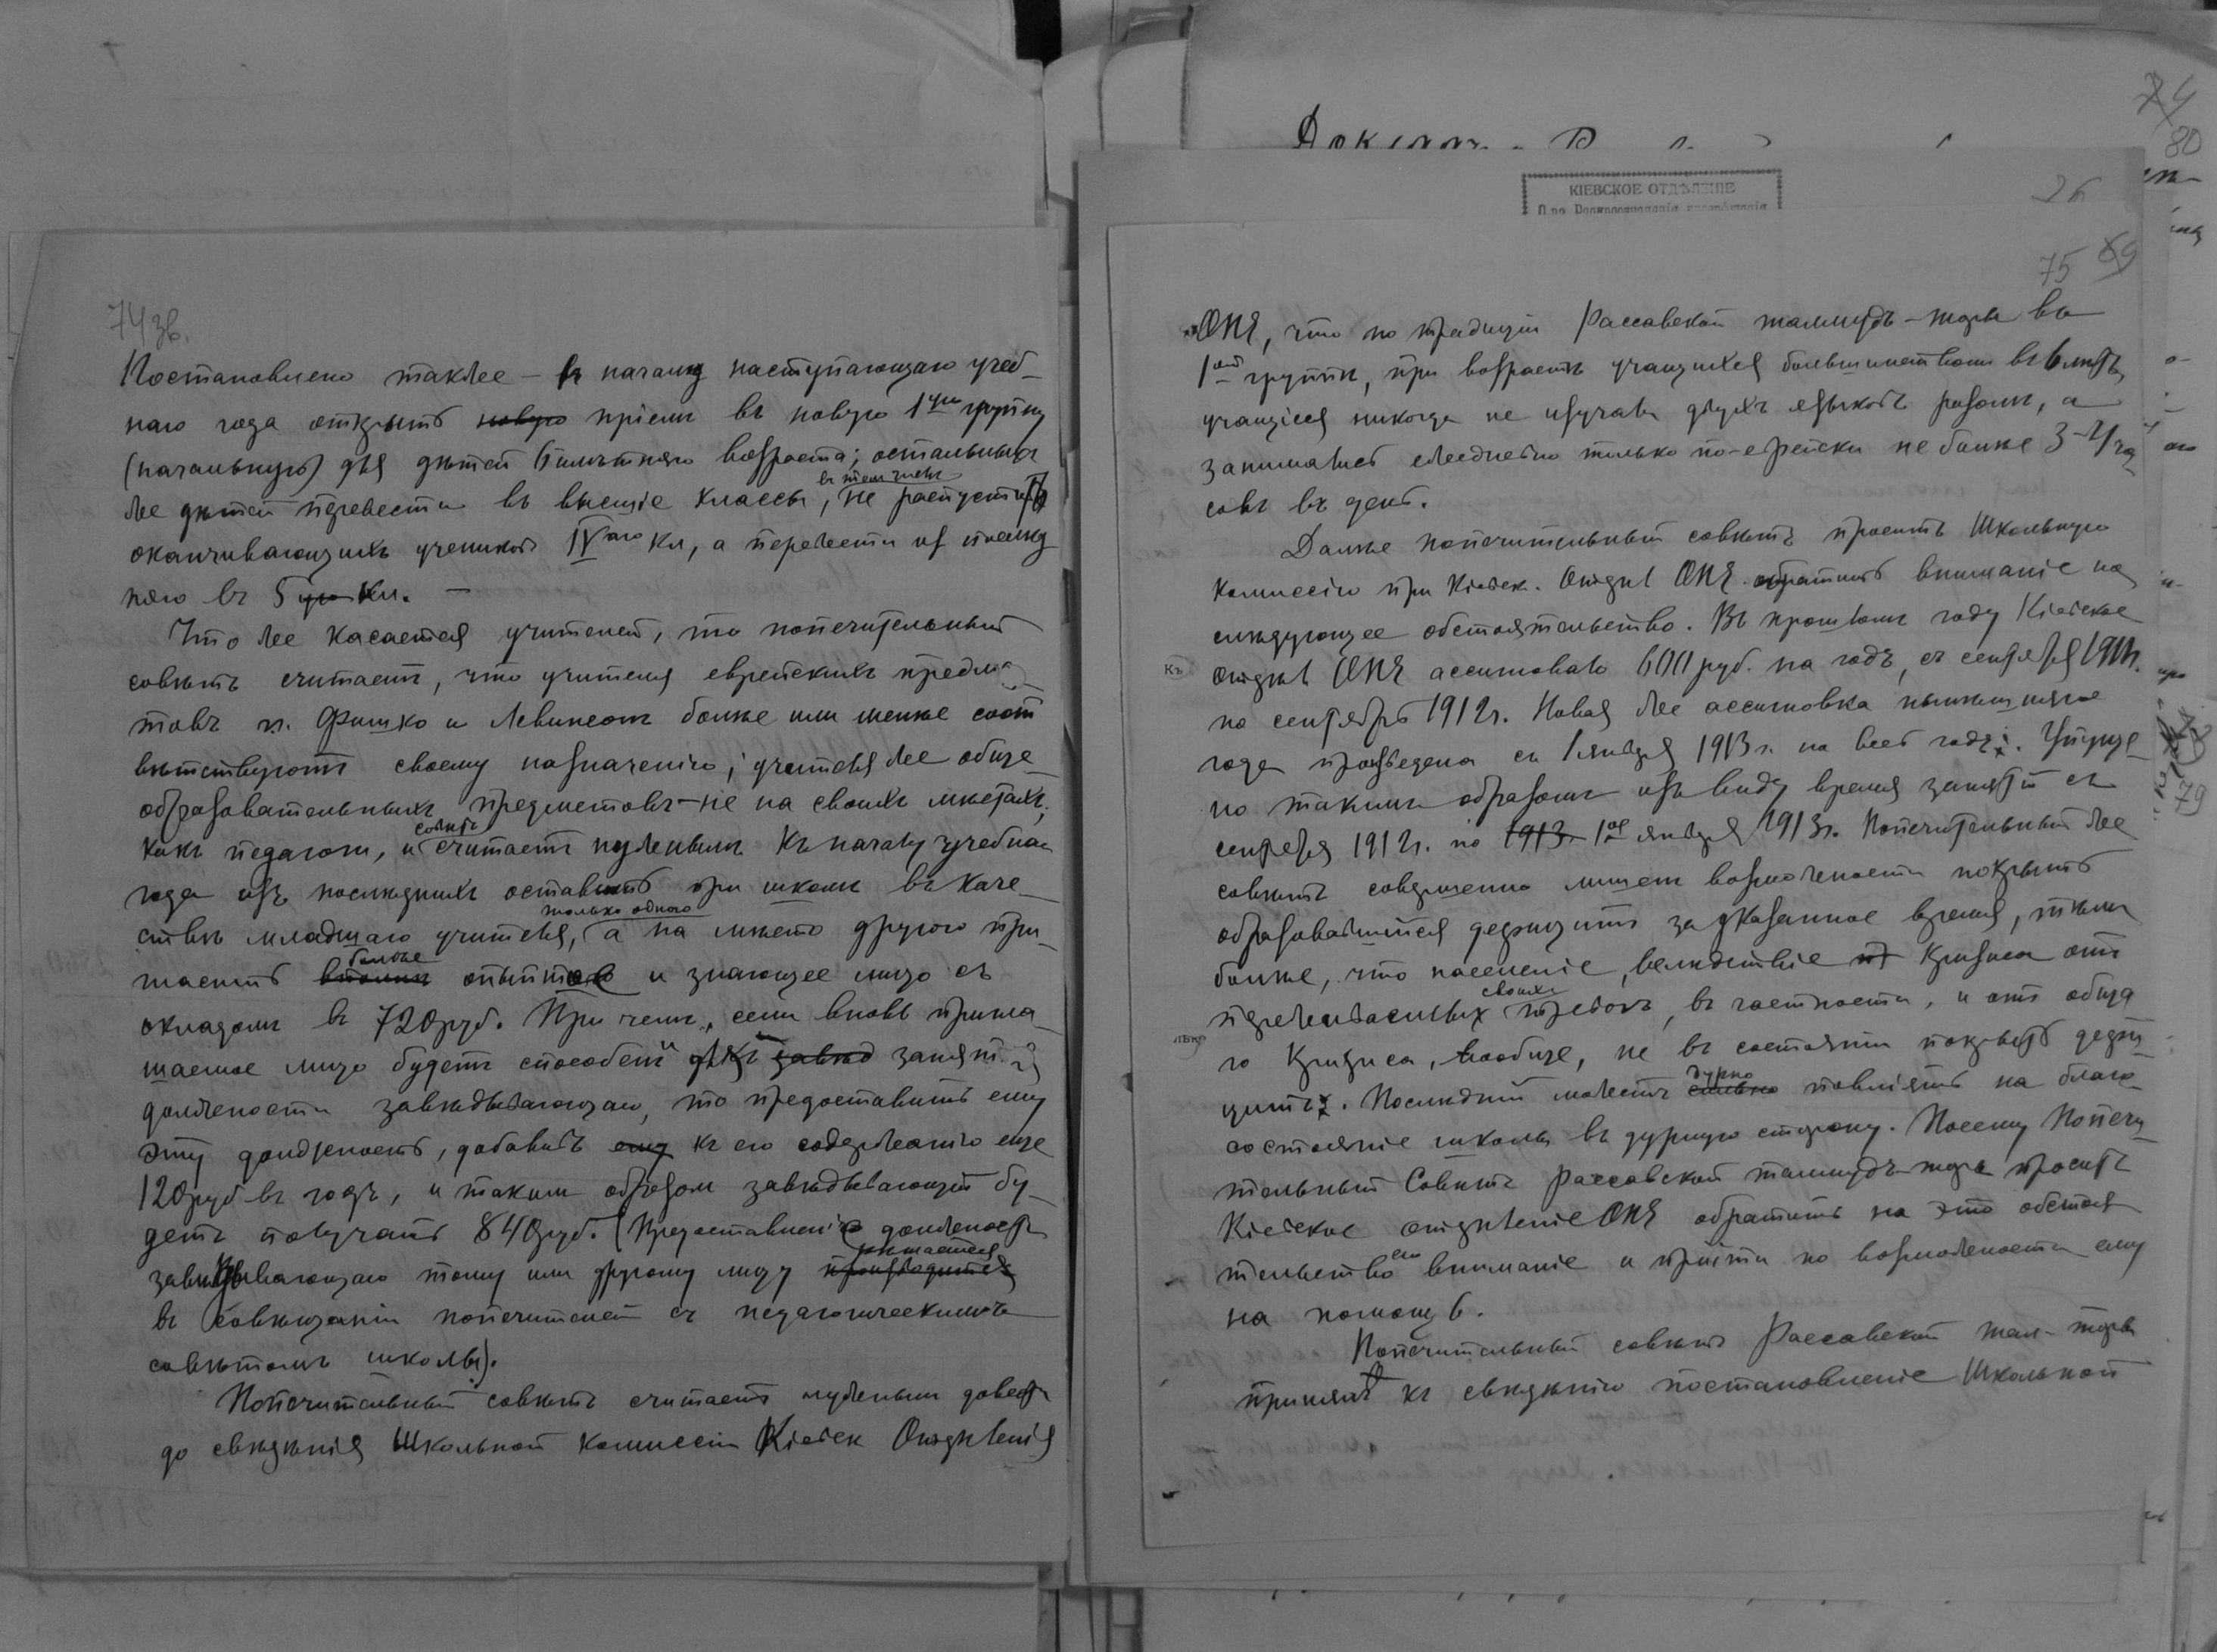 74 зв.
Постановлено также – къ началу наступающаго учеб-
наго года открыть новую пріемъ въ новую 1ую группу
(начальную) для дѣтей 6тилѣтняго возраста; остальныхъ
въ томъ числѣ
же дѣтей перевести въ высшіе классы, не распустить
оканчивающихъ учениковъ IVаго кл, а перевести
въ 5 кл. –
Что же касается учителей, то попечительный
совѣтъ считаетъ, что учителя еврейскихъ предме-
товъ гг. Фишко и Левинсонъ болѣе или менѣе соот
вѣтствуютъ своему назначенію; учителя же обще-
образовательныхъ предметовъ – не на своихъ мѣстахъ,
совѣтъ
какъ педагоги, и считаетъ нужнымъ къ началу учебнаго
года изъ послѣднихъ оставить при школѣ въ каче-
только одного
ствѣ младшаго учителя, а на мѣсто другого при-
болѣе
гласить вполнѣ опытное и знающее лицо съ
окладомъ въ 720 руб. При чемъ, если вновь пригла-
шаемое лицо будетъ способенъ для завѣд занятія
должности завѣдывающаго, то предоставить ему
эту должность, добавить ему къ его содержанію еще
120 руб въ годъ, и такимъ образомъ завѣдывающій бу-
детъ получать 840 руб. (Предоставленіе должности
рѣшается
завѣдывающаго тому или другому лицу производится
въ совѣщаніи попечителей съ педагогическимъ
совѣтомъ школы).
Попечительный совѣтъ считаетъ нужнымъ довести
до свѣдѣнія Школьной Комиссіи Кіевск Отдѣленія
КІЕВСКОЕ ОТДѢЛЕНІЕ
26
74
80
75 69
ОПЕ, что по традиціи Рассавской талмудъ-торы въ
1ой группѣ, при возрастѣ учащихся большинствомъ въ 6 лѣтъ,
учащіеся никогда не изучали двухъ языковъ разомъ, а
занимались ежедневно только по-еврейски не болѣе 3-4 ча-
совъ въ день.
Далѣе попечительный совѣтъ проситъ Школьную
Комиссію при Кіевск. Отдѣл ОПЕ обратить вниманіе на
слѣдующее обстоятельство. Въ прошломъ году Кіевское
Къ
Отдѣл ОПЕ ассигновало 600 руб. на годъ, съ сентября 1911 г.
по сентябрь 1912 г. Новая же ассигновка нынѣшняго
года произведена съ 1 января 1913 г. на весь годъ. Упуще-
но такимъ образомъ изъ виду время занятій съ
сентября 1912 г. по 1913 1ое января 1913 г. Попечительный же
совѣтъ совершенно лишенъ возможности покрыть
образовавшійся дефицитъ за указанное время, тѣмъ
болѣе, что населеніе, вслѣдствіе кризиса отъ
своихъ
переживаемыхъ тревогъ, въ частности, и отъ обща-
го кризиса, вообще, не въ состояніи покрыть дефи-
дурно
цитъ. Послѣдній можетъ сильно повліять на благо-
состояніе школы въ дурную сторону. Посему Попечи-
тельный Совѣтъ Рассавской талмудъ-торы проситъ
Кіевское отдѣленіе ОПЕ обратить на это обстоя-
тельство вниманіе и прійти по возможности ему
на помощь.
Попечительный совѣтъ Рассавской тал-торы
принялъ къ свѣдѣнію постановленіе Школьной
79